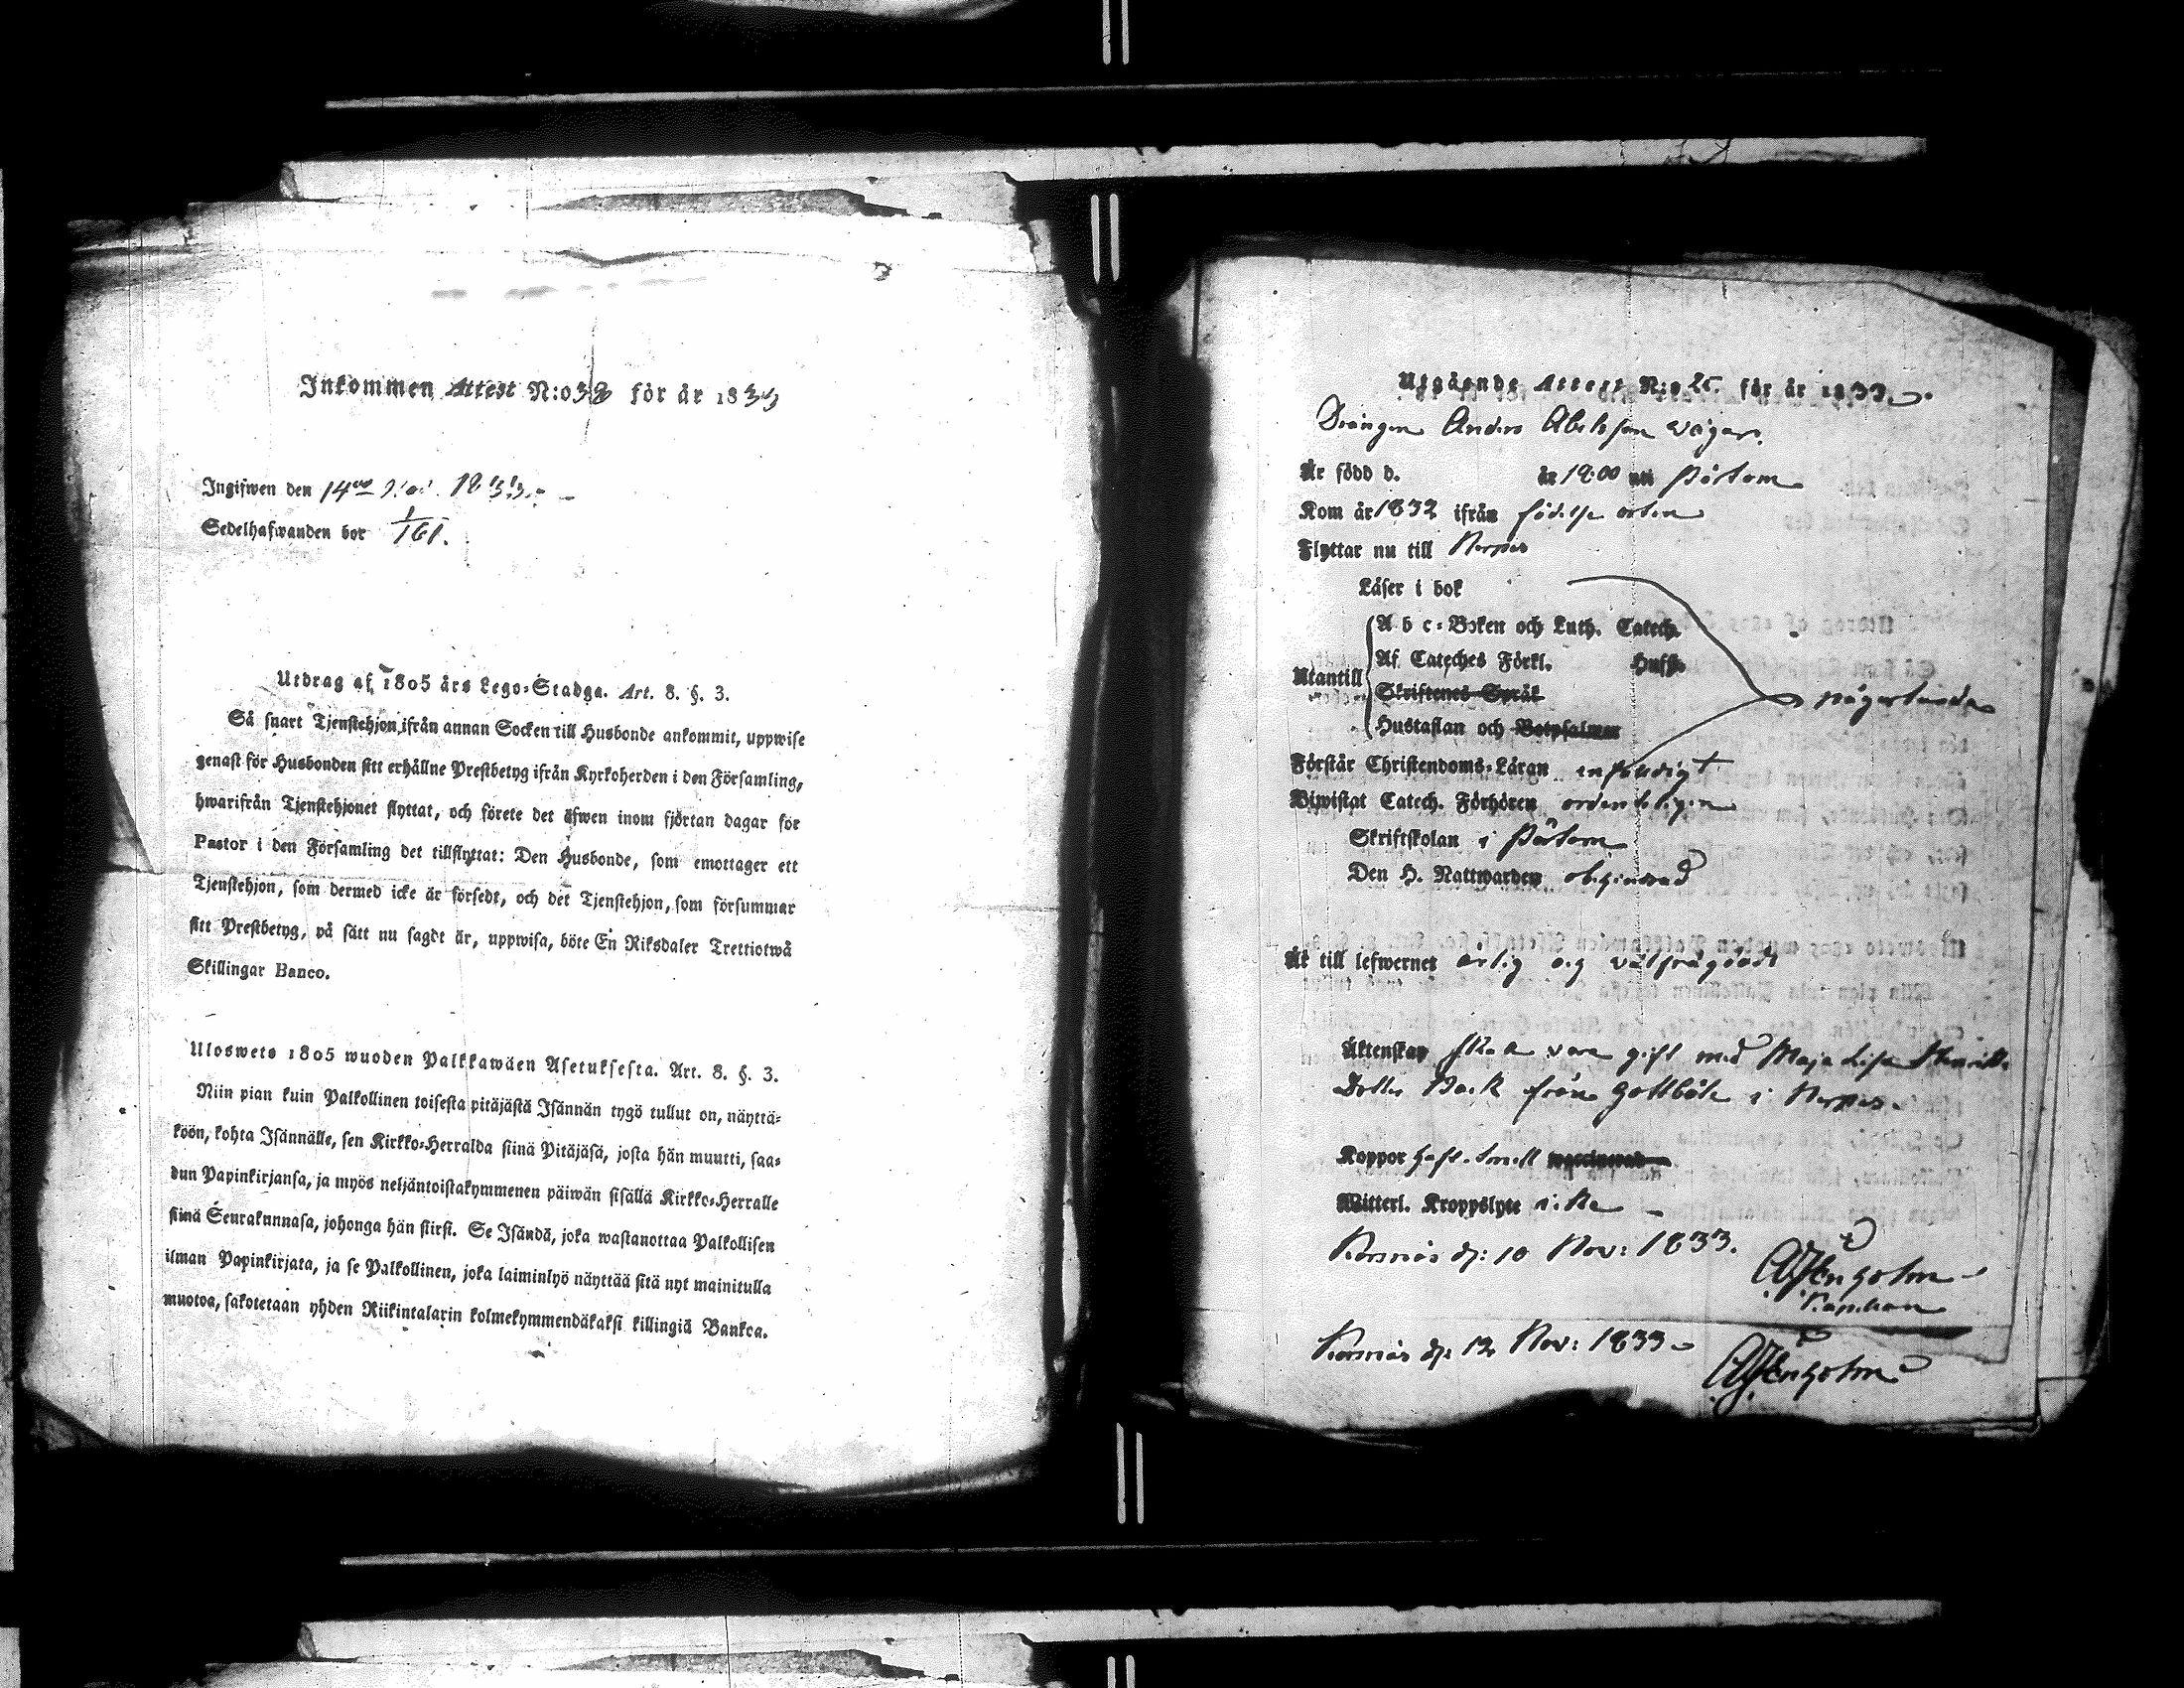 Inkommen Attest N:o 38 för år 1833
Ingifwen den 14de Nov. 1833.
Sedelhafwanden bor 1/161.
Utdrag af 1805 års Lego-Stadga. Art. 8. §. 3.
Så snart Tjenstehjon ifrån annan Socken till Husbonde ankommit, uppwise
genast för Husbonden sitt erhållne Prestbetyg ifrån Kyrkoherden i den Församling,
hwarifrån Tjenstehjonet flyttat, och förete det äfwen inom fjortan dagar för
Pastor i den Församling det tillflyttat: Den Husbonde, som emottager ett
Tjenstehjon, som dermed icke är försedt, och det Tjenstehjon, som försummar
sitt Prestbetyg, på sätt nu sagdt är, uppwisa, böte En Riksdaler Trettiotwå
Skillingar Banco.
Ulosweto 1805 wuoden Palkkawäen Asetuksesta. Art. 8. §. 3.
Niin pian kuin Palkollinen toisesta pitäjästä Isännän tygö tullut on, näyttä-
köön, kohta Isännälle, sen Kirkko-Herralda siinä Pitäjäsä, josta hän muutti, saa-
dun Papinkirjansa, ja myös neljäntoistakymmenen päiwän sisällä Kirkko-Herralle
siinä Seurakunnasa, johonga hän siirsi. Se Isändä, joka wastanottaa Palkollisen
ilman Papinkirjata, ja se Palkollinen, joka laiminlyö näyttää sitä nyt mainitulla
muotoa, sakotetaan yhden Riikintalarin kolmekymmendäkaksi killingiä Bankoa.
Utgående Attest N:o 25 för år 1833.
Drängen Anders Abelsson Wägar.
Är född d. år 1800 uti Pörtom
Kom år 1832 ifrån födelse orten
Flyttar nu till Nerpes
Läser i bok
A b c-Boken och Luth. Catech.
Af Cateches Förkl. Husf.
Utantill
Skriftenes Språk någorlunda
Hustaflan och Botpsalmer
Förstår Christendoms-Läran enfaldigt
Biwistat Catech. Förhören ordenteligen
Skriftskolan i Pörtom
Den H. Nattwarden obehindrad
Är till lefwernet ärlig och välfrägdad
Äktenskap skall vara gift med Maja Lisa Henriks
Dotter Back från Gottböle i Nerpes.
Koppor haft. Smitt vaccinerad
Witterl. Kroppslyte icke
Korsnäs d. 10 Nov: 1833.
Stenholm
Kapellan
Korsnäs d. 12 Nov: 1833
Stenholm